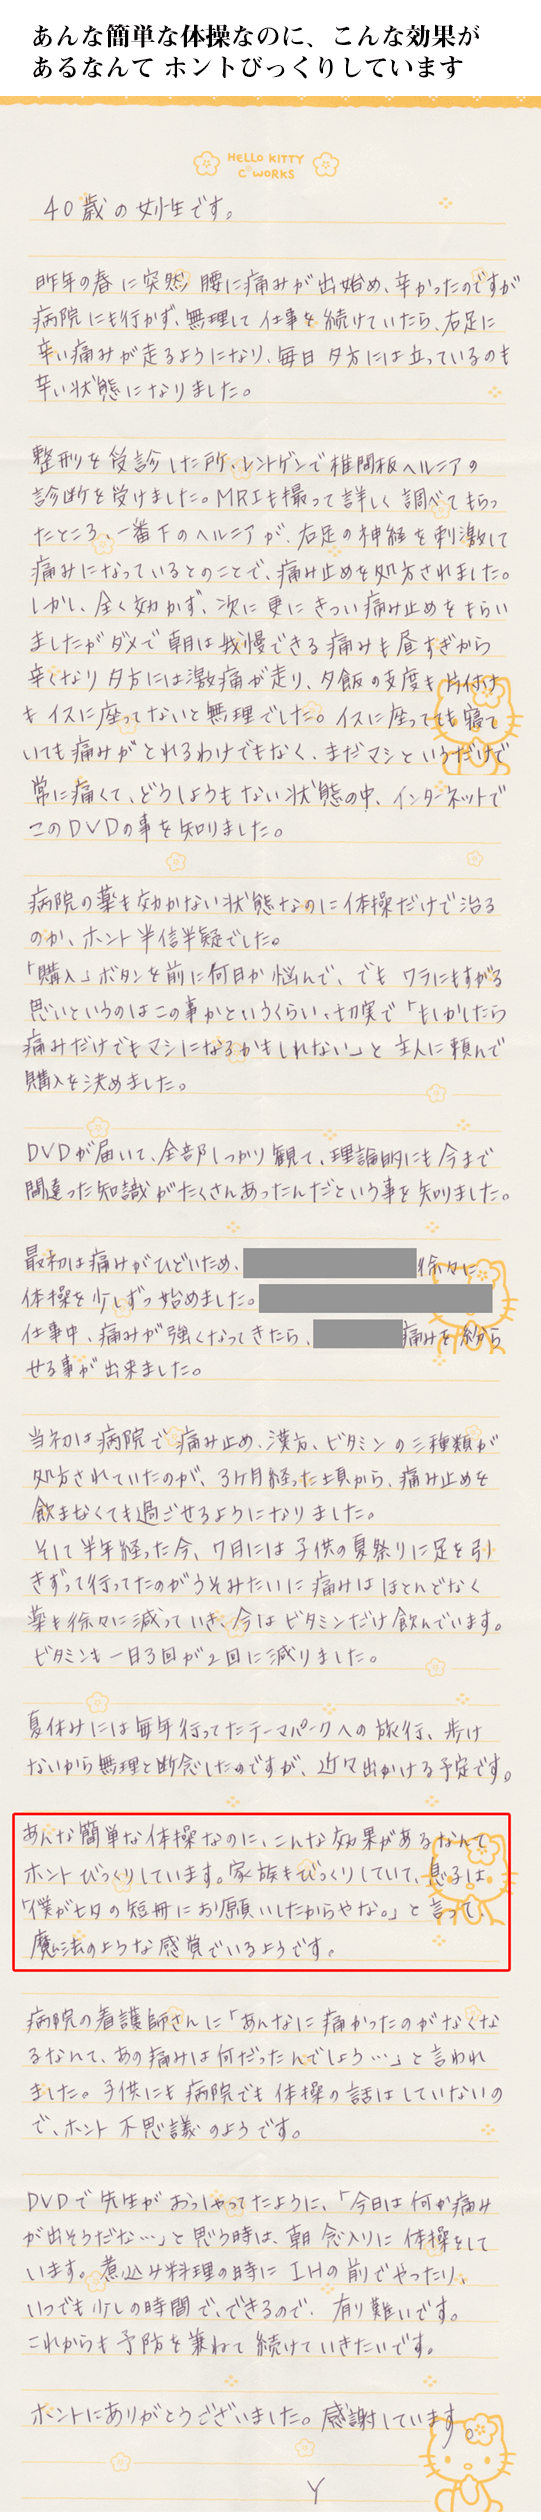 あんな簡単な体操なのに、こんな効果が
あるなんて ホントびっくりしています
HELLO KITTY
C WORKS
40歳の女性です。
昨年の春に突然 腰に痛みが出始め、辛かったのですが
病院にも行かず、無理して仕事を続けていたら、右足に
辛い痛みが走るようになり、毎日 夕方には立っているのも
辛い状態になりました。
整形を受診した所、レントゲンで椎間板ヘルニアの
診断を受けました。MRIも撮って詳しく調べてもらっ
たところ、一番下のヘルニアが、右足の神経を刺激して
痛みになっているとのことで、痛み止めを処方されました。
しかし、全く効かず、次に更にきつい痛み止めをもらい
ましたがダメで朝は我慢できる痛みも昼すぎから
辛くなり夕方には激痛が走り、夕飯の支度も片付け
もイスに座ってないと無理でした。イスに座ってても寝て
いても痛みがとれるわけでもなく、まだマシというだけで
常に痛くて、どうしようもない状態の中、インターネットで
このDVDの事を知りました。
病院の薬も効かない状態なのに体操だけで治る
のか、ホント半信半疑でした。
「購入」ボタンを前に何日か悩んで、でもワラにもすがる
思いというのはこの事かというくらい、切実で「もしかしたら
痛みだけでもマシになるかもしれない」と主人に頼んで
購入を決めました。
DVDが届いて、全部しっかり観て、理論的にも今まで
間違った知識がたくさんあったんだという事を知りました。
最初は痛みがひどいため、 徐々に
体操を少しずつ始めました。
仕事中、痛みが強くなってきたら、 痛みを紛ら
せる事が出来ました。
当初は病院で痛み止め、漢方、ビタミンの三種類が
処方されていたのが、3ヶ月経った頃から、痛み止めを
飲まなくても過ごせるようになりました。
そして半年経った今、7月には子供の夏祭りに足を引
きずって行ってたのがうそみたいに痛みはほとんどなく
薬も徐々に減っていき、今はビタミンだけ飲んでいます。
ビタミンも一日3回が2回に減りました。
夏休みには毎年行ってたテーマパークへの旅行、歩け
ないから無理と断念したのですが、近々出かける予定です。
あんな簡単な体操なのに、こんな効果があるなんて
ホントびっくりしています。家族もびっくりしていて、息子は
「僕が七夕の短冊にお願いしたからやな。」と言って、
魔法のような感覚でいるようです。
病院の看護師さんに「あんなに痛かったのがなくな
るなんて、あの痛みは何だったんでしょう…」と言われ
ました。子供にも病院でも体操の話はしていないの
で、ホント不思議のようです。
DVDで先生がおっしゃってたように、「今日は何か痛み
が出そうだな…」と思う時は、朝 念入りに体操をして
います。煮込み料理の時にIHの前でやったり、
いつでも少しの時間で、できるので、有り難いです。
これからも予防を兼ねて続けていきたいです。
ホントにありがとうございました。感謝しています。
Y